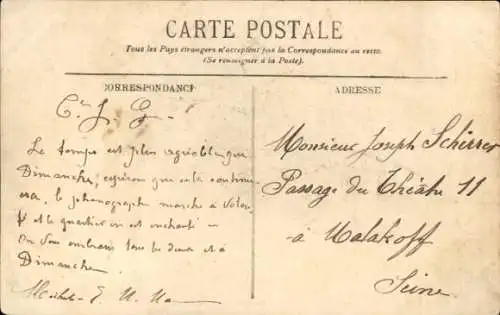 CARTE POSTALE
Tous les Pays étrangers n'acceptent pas la Correspondance au recto.
(Se renseigner à la Poste).
CORRESPONDANCE
ADRESSE
C. J. G.
Le temps est plus agréable que
Dimanche, espérons que cela continu-
era, le phonographe marche à
et le quartier en est enchanté -
On vous embrasse tous les deux et à
Dimanche
Monsieur Joseph Schirrer
Passage du Théatre 11
à Malakoff
Seine